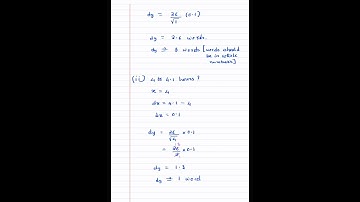 dy = 26/√1 (0.1)
dy = 2.6 words.
dy → 3 words [words should
be in whole
numbers]
(ii) 4 to 4.1 hours?
x = 4
dx = 4.1 - 4
dx = 0.1
dy = 26/√4 × 0.1
= 26/2 × 0.1
dy = 1.3
dy → 1 word